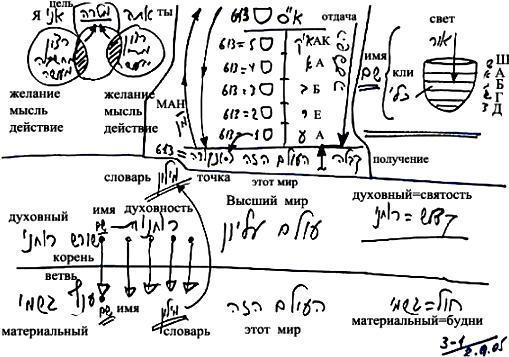 цель
Я אני מטרה אתה ты
רצון מחשבה מעשה
רצון מחשבה מעשה
желание мысль действие
желание мысль действие
613 א"ס
613 = 5
613 = 4
613 = 3
613 = 2
613 = 1
АК א"ק
А א
Б ב
Е י
А ע
МАН מ"ן
613 =
отдача
получение
קבלה
свет
אור
имя שם
кли כלי
Ш
А
Б
Г
Д
словарь מילון точка этот мир העולם הזה
духовный имя שם духовность רוחניות
שורש רוחני
корень
ветвь
ענף גשמי
материальный שם имя מילון словарь
Высший мир
עולם עליון
העולם הזה
этот мир
духовный=святость
קודש = רוחני
חול = גשמי
материальный=будни
3-1
2.9.05